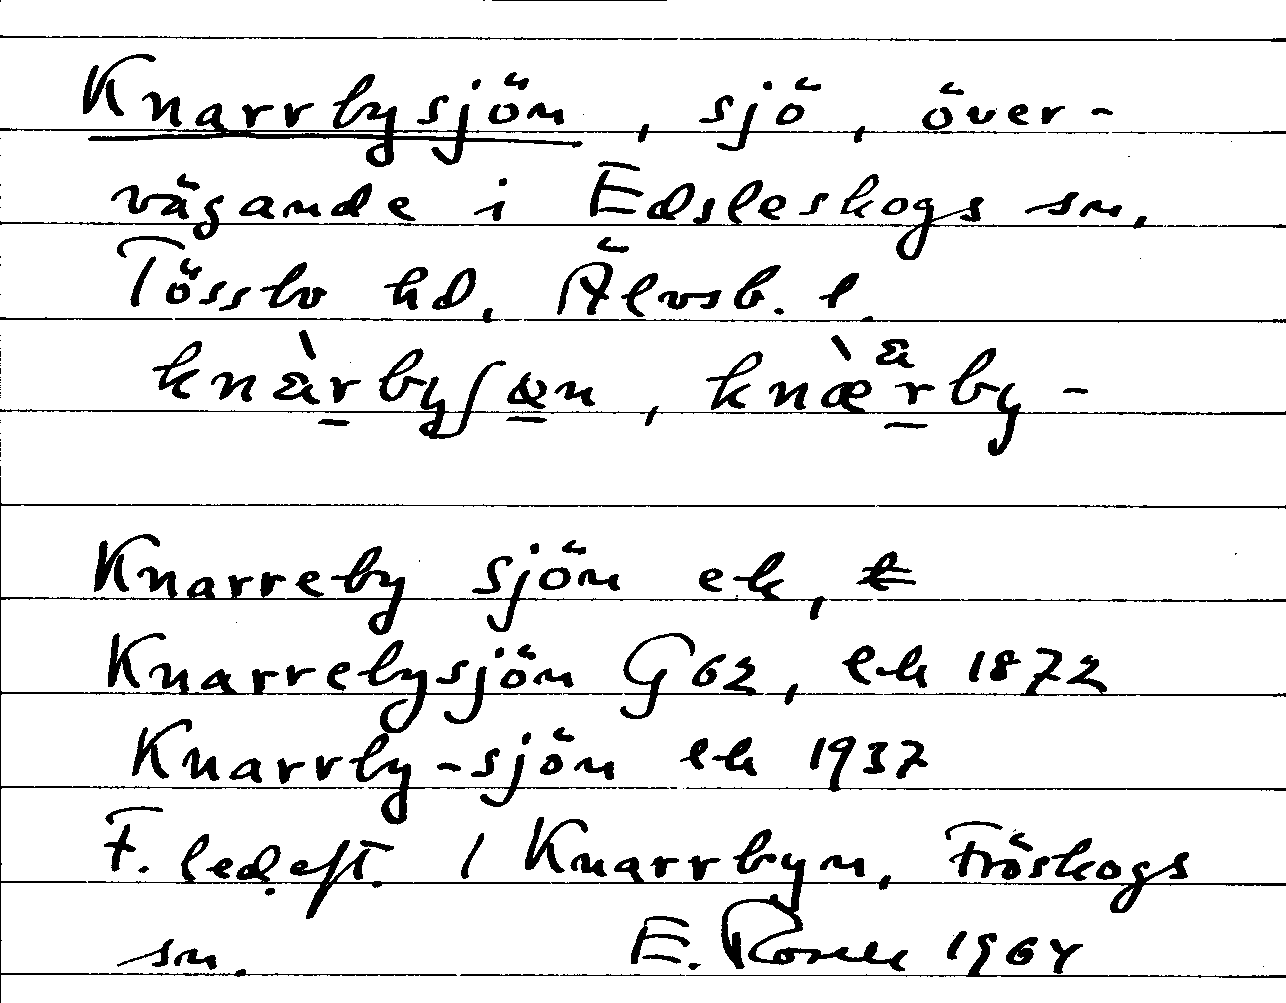 Knarrbysjön, sjö, över-
vägande i Edsleskogs sn,
Tössbo hd, Älvsb. l.
Knarreby sjön ek,
Knarrebysjön G 62, ek 1872
Knarrby-sjön ek 1937
F. led. eft. 1 Knarrbyn, Fröskogs
sn. E. 1964